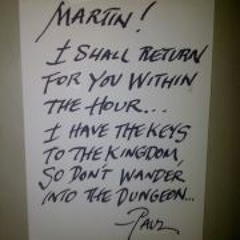 MARTIN!
I SHALL RETURN
FOR YOU WITHIN
THE HOUR...
I HAVE THE KEYS
TO THE KINGDOM,
SO DON'T WANDER
INTO THE DUNGEON...
-PAUL